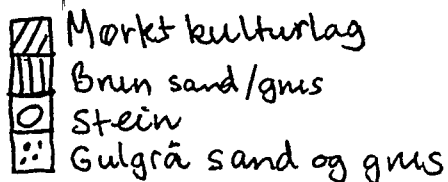 Mørkt kulturlag
Brun sand/grus
Stein
Gulgrå sand og grus